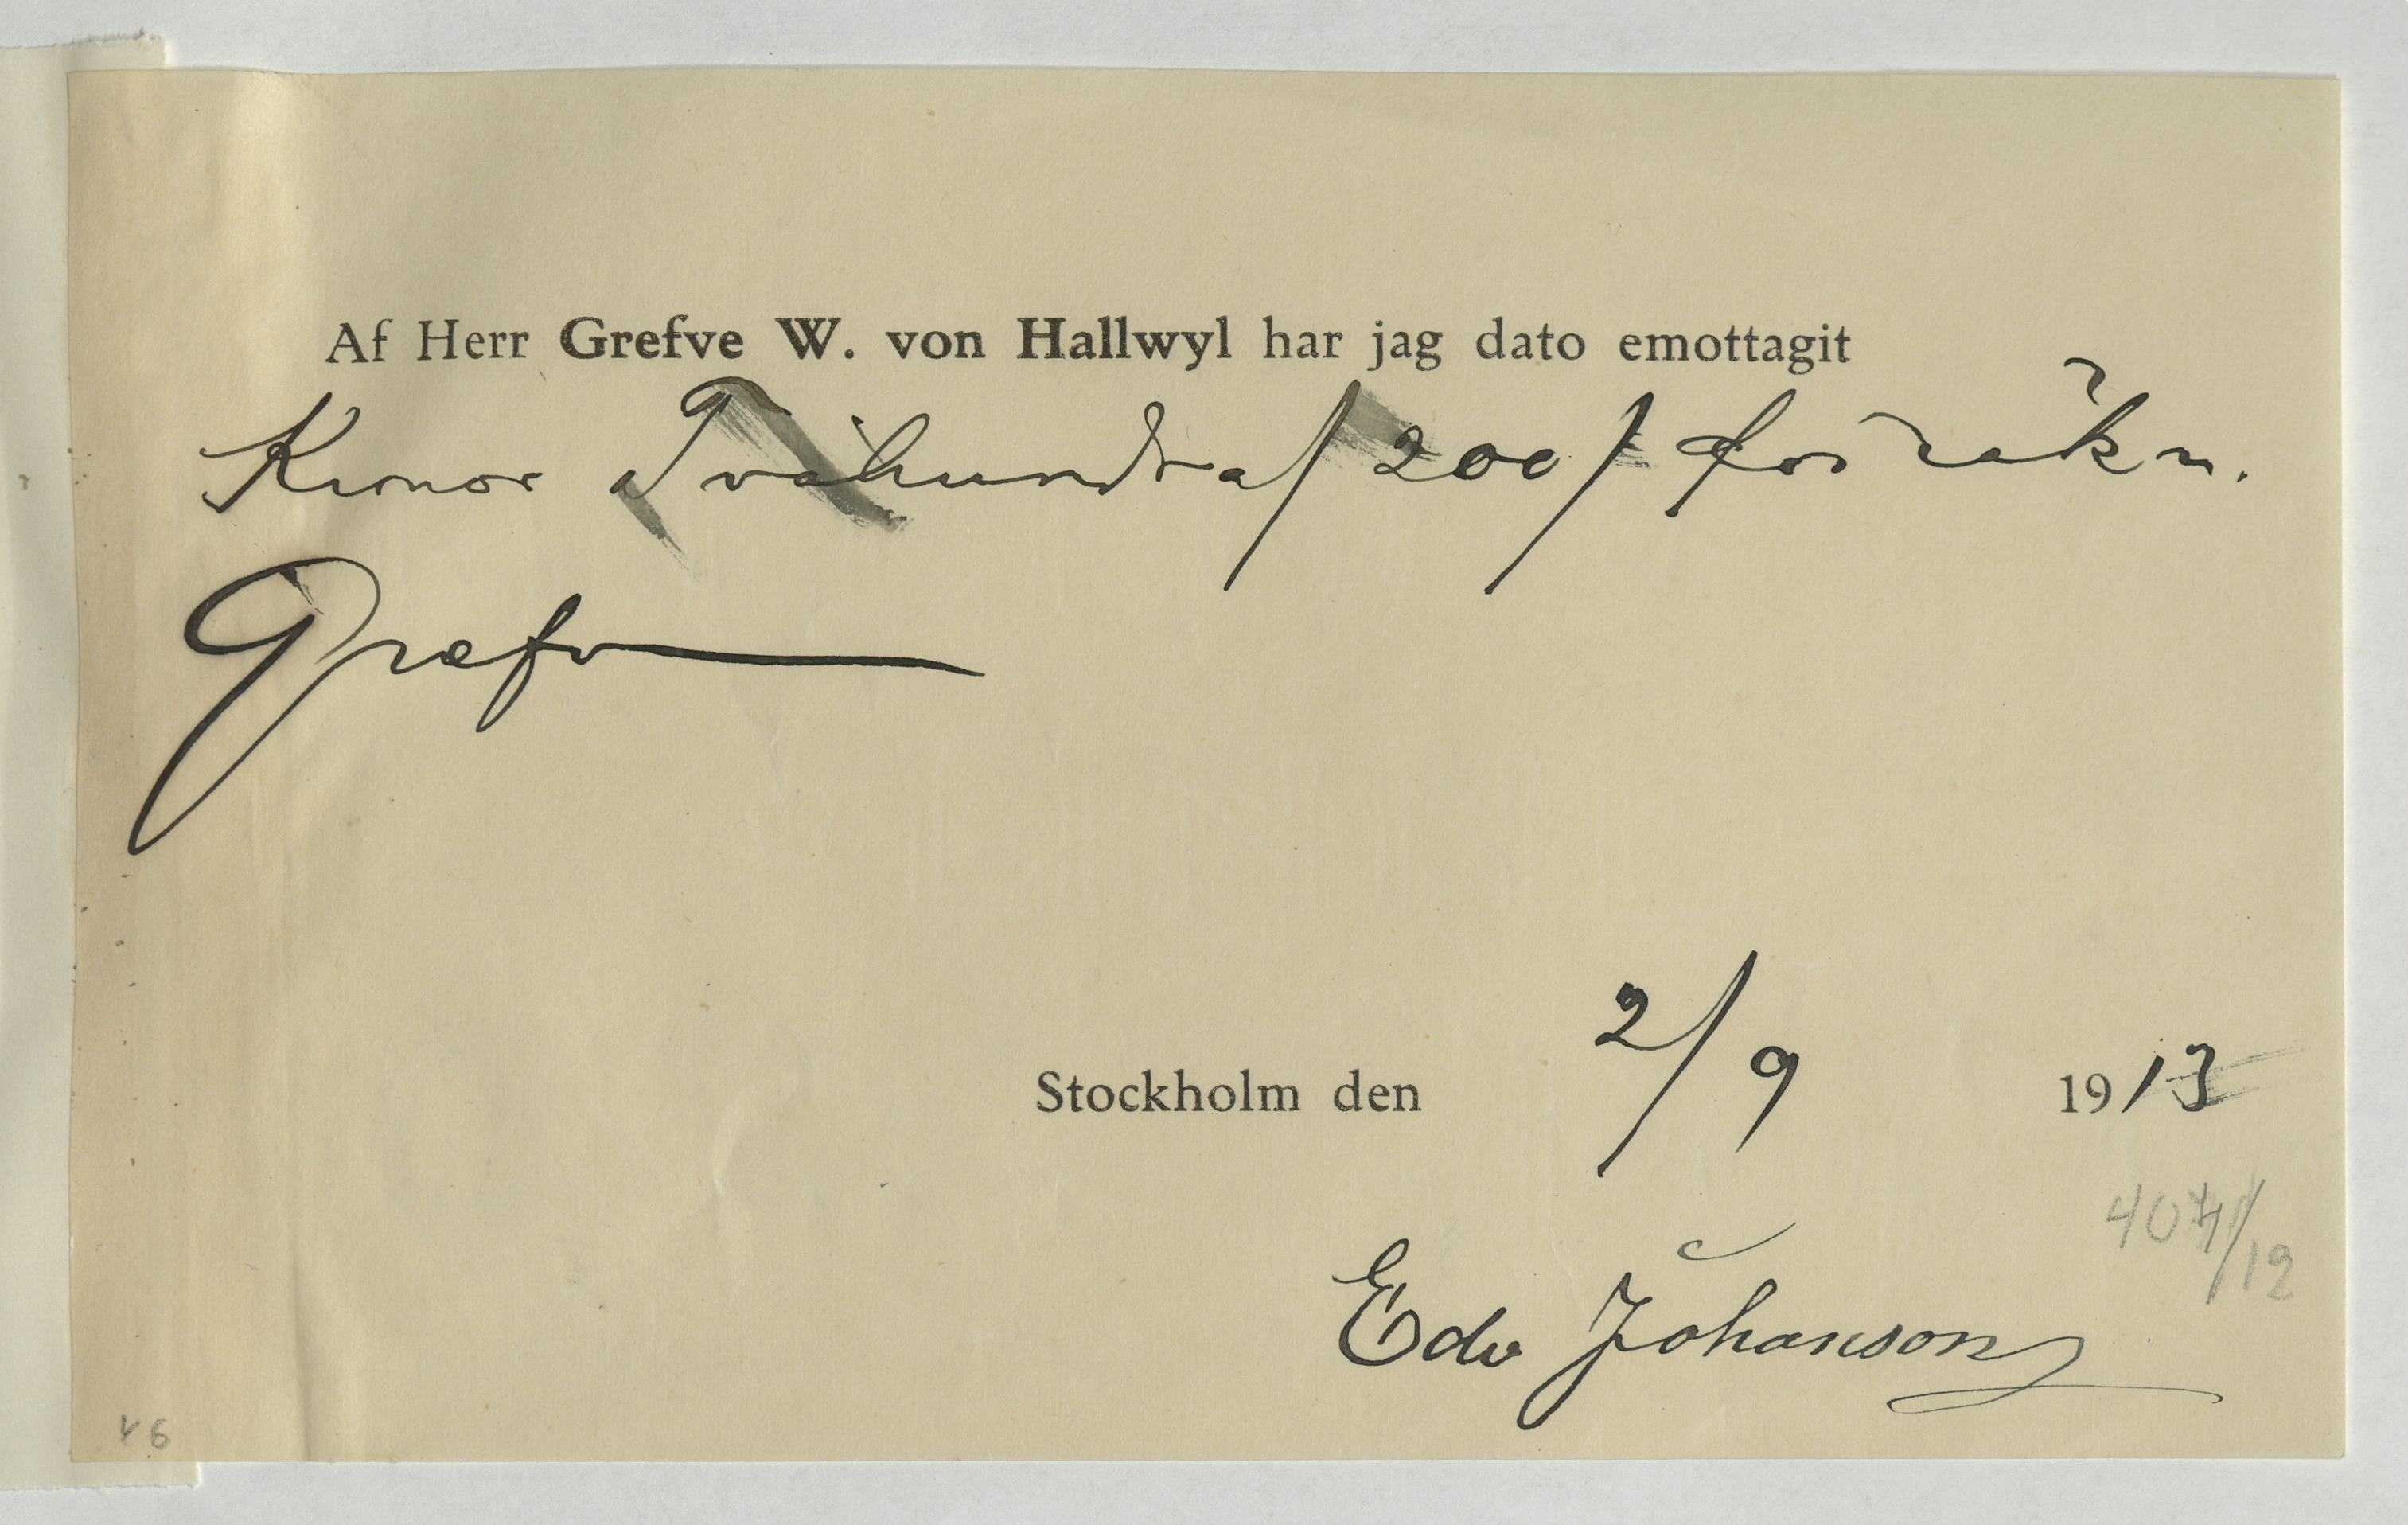 Af Herr Grefve W. von Hallwyl har jag dato emottagit
Kronor Tvåhundra/ 200/ för räkn.
Grefv
Stockholm den 2/9 1913
Edv Johanson